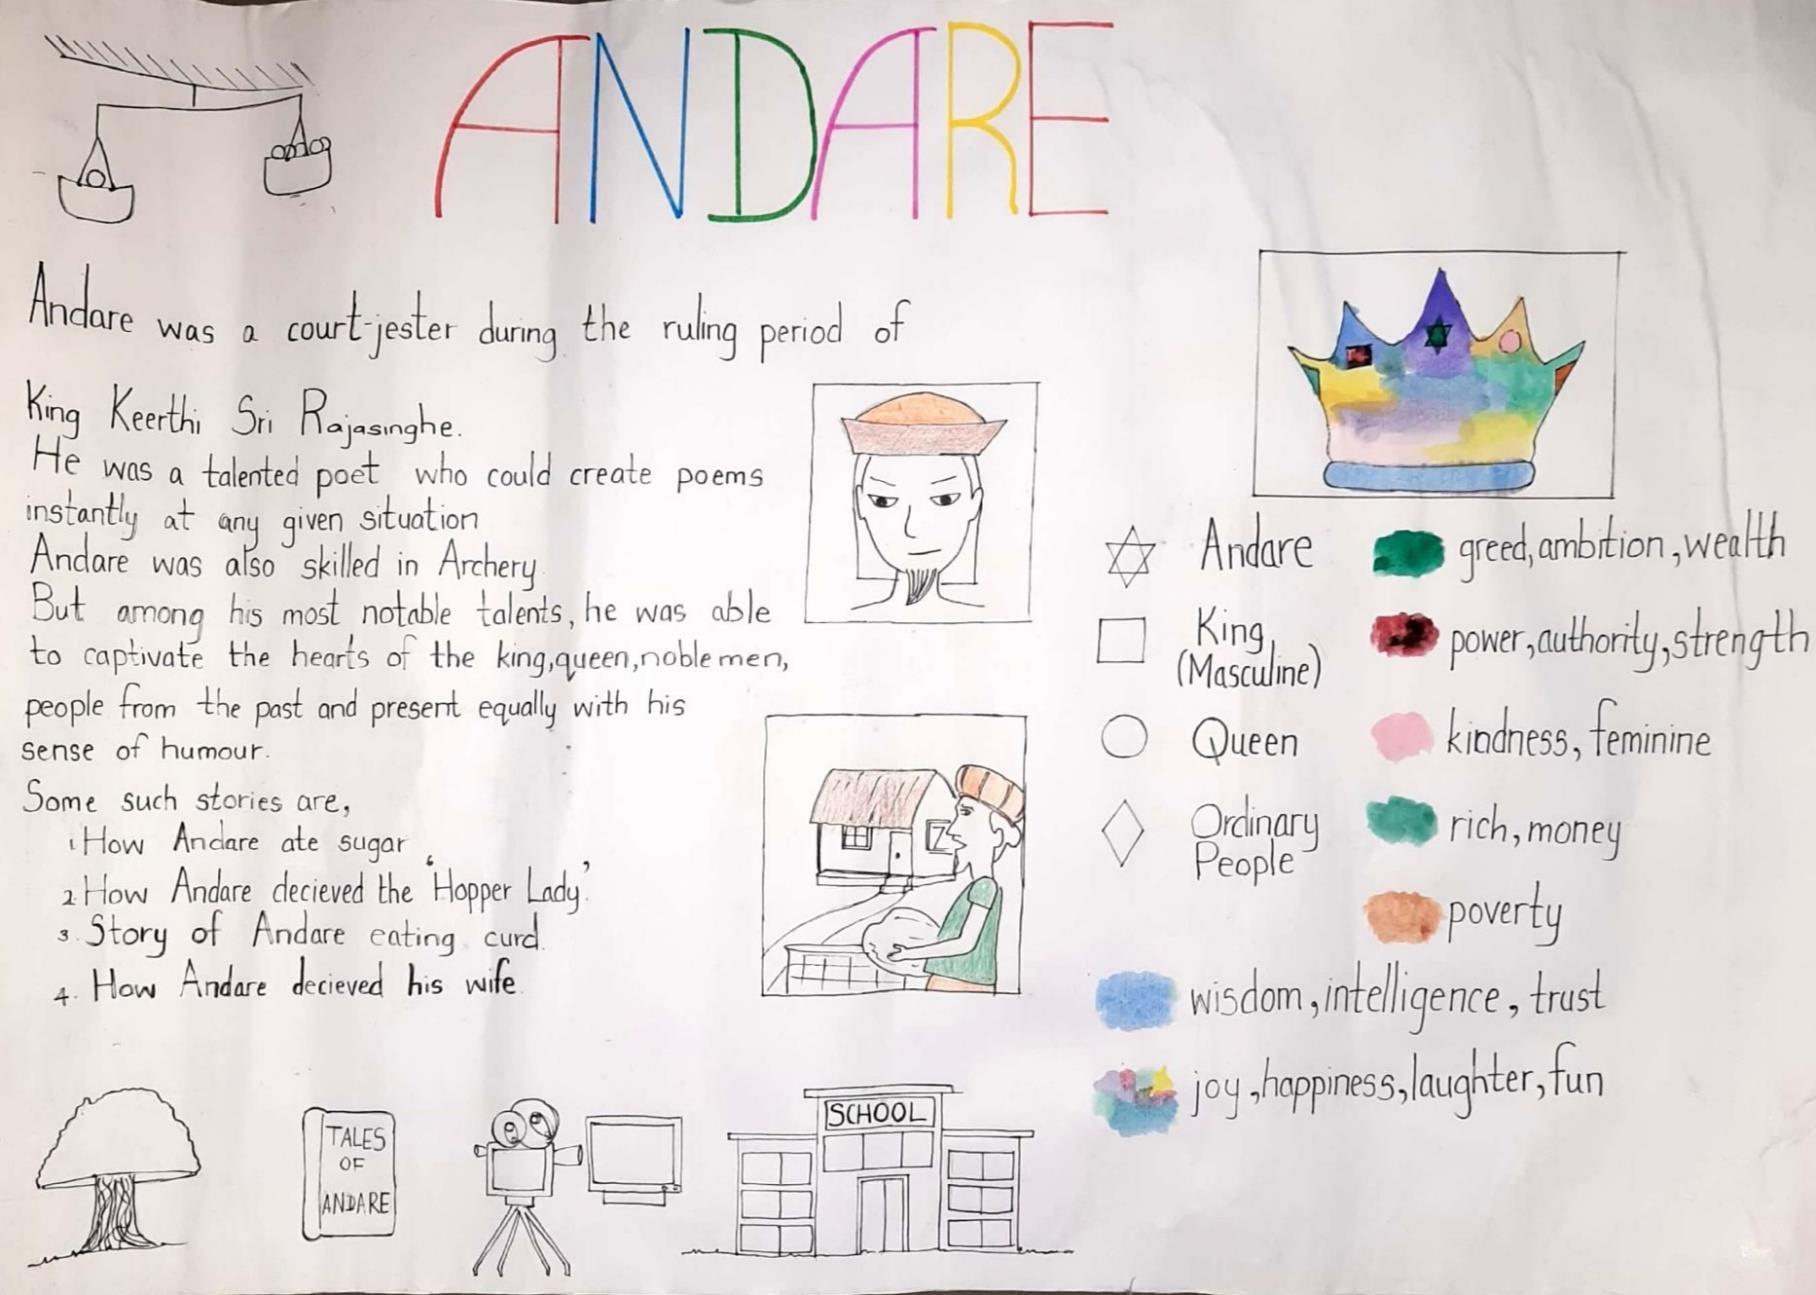 ANDARE
Andare was a court-jester during the ruling period of
King Keerthi Sri Rajasinghe.
He was a talented poet who could create poems
instantly at any given situation
Andare was also skilled in Archery.
But among his most notable talents, he was able
to captivate the hearts of the king, queen, noble men,
people from the past and present equally with his
sense of humour.
Some such stories are,
1. How Andare ate sugar
2. How Andare decieved the 'Hopper Lady'.
3. Story of Andare eating curd.
4. How Andare decieved his wife.
TALES
OF
ANDARE
SCHOOL
Andare
King
(Masculine)
Queen
Ordinary
People
greed, ambition, wealth
power, authority, strength
kindness, feminine
rich, money
poverty
wisdom, intelligence, trust
joy, happiness, laughter, fun